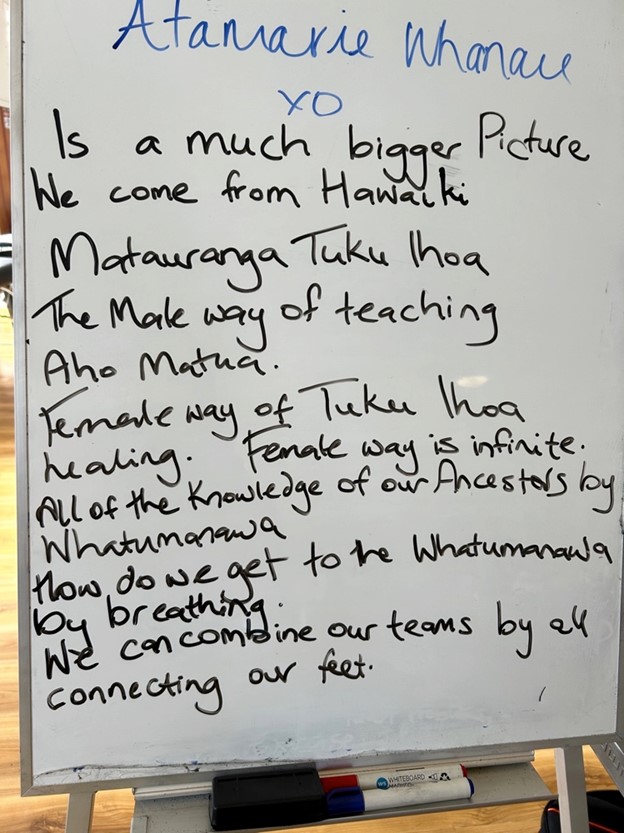 Atamarie Whanau
XO
Is a much bigger Picture
We come from Hawaiki
Matauranga Tuku Ihoa
The Male way of teaching
Aho Matua.
Female way of Tuku Ihoa
healing. Female way is infinite.
All of the Knowledge of our Ancestors by
Whatumanawa
How do we get to the Whatumanawa
by breathing.
We can combine our teams by all
connecting our feet.
WHITEBOARD